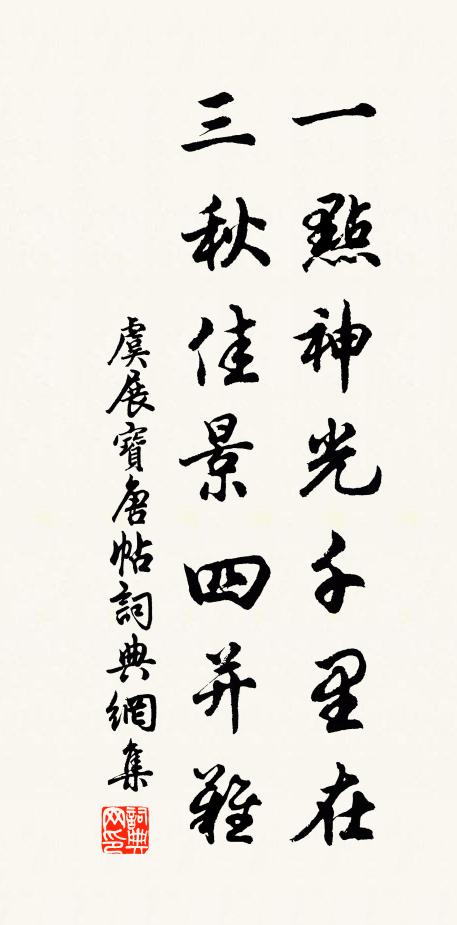 一點神光千里在
三秋佳景四并難
虞展寶唐帖詞典網集
詞典网印